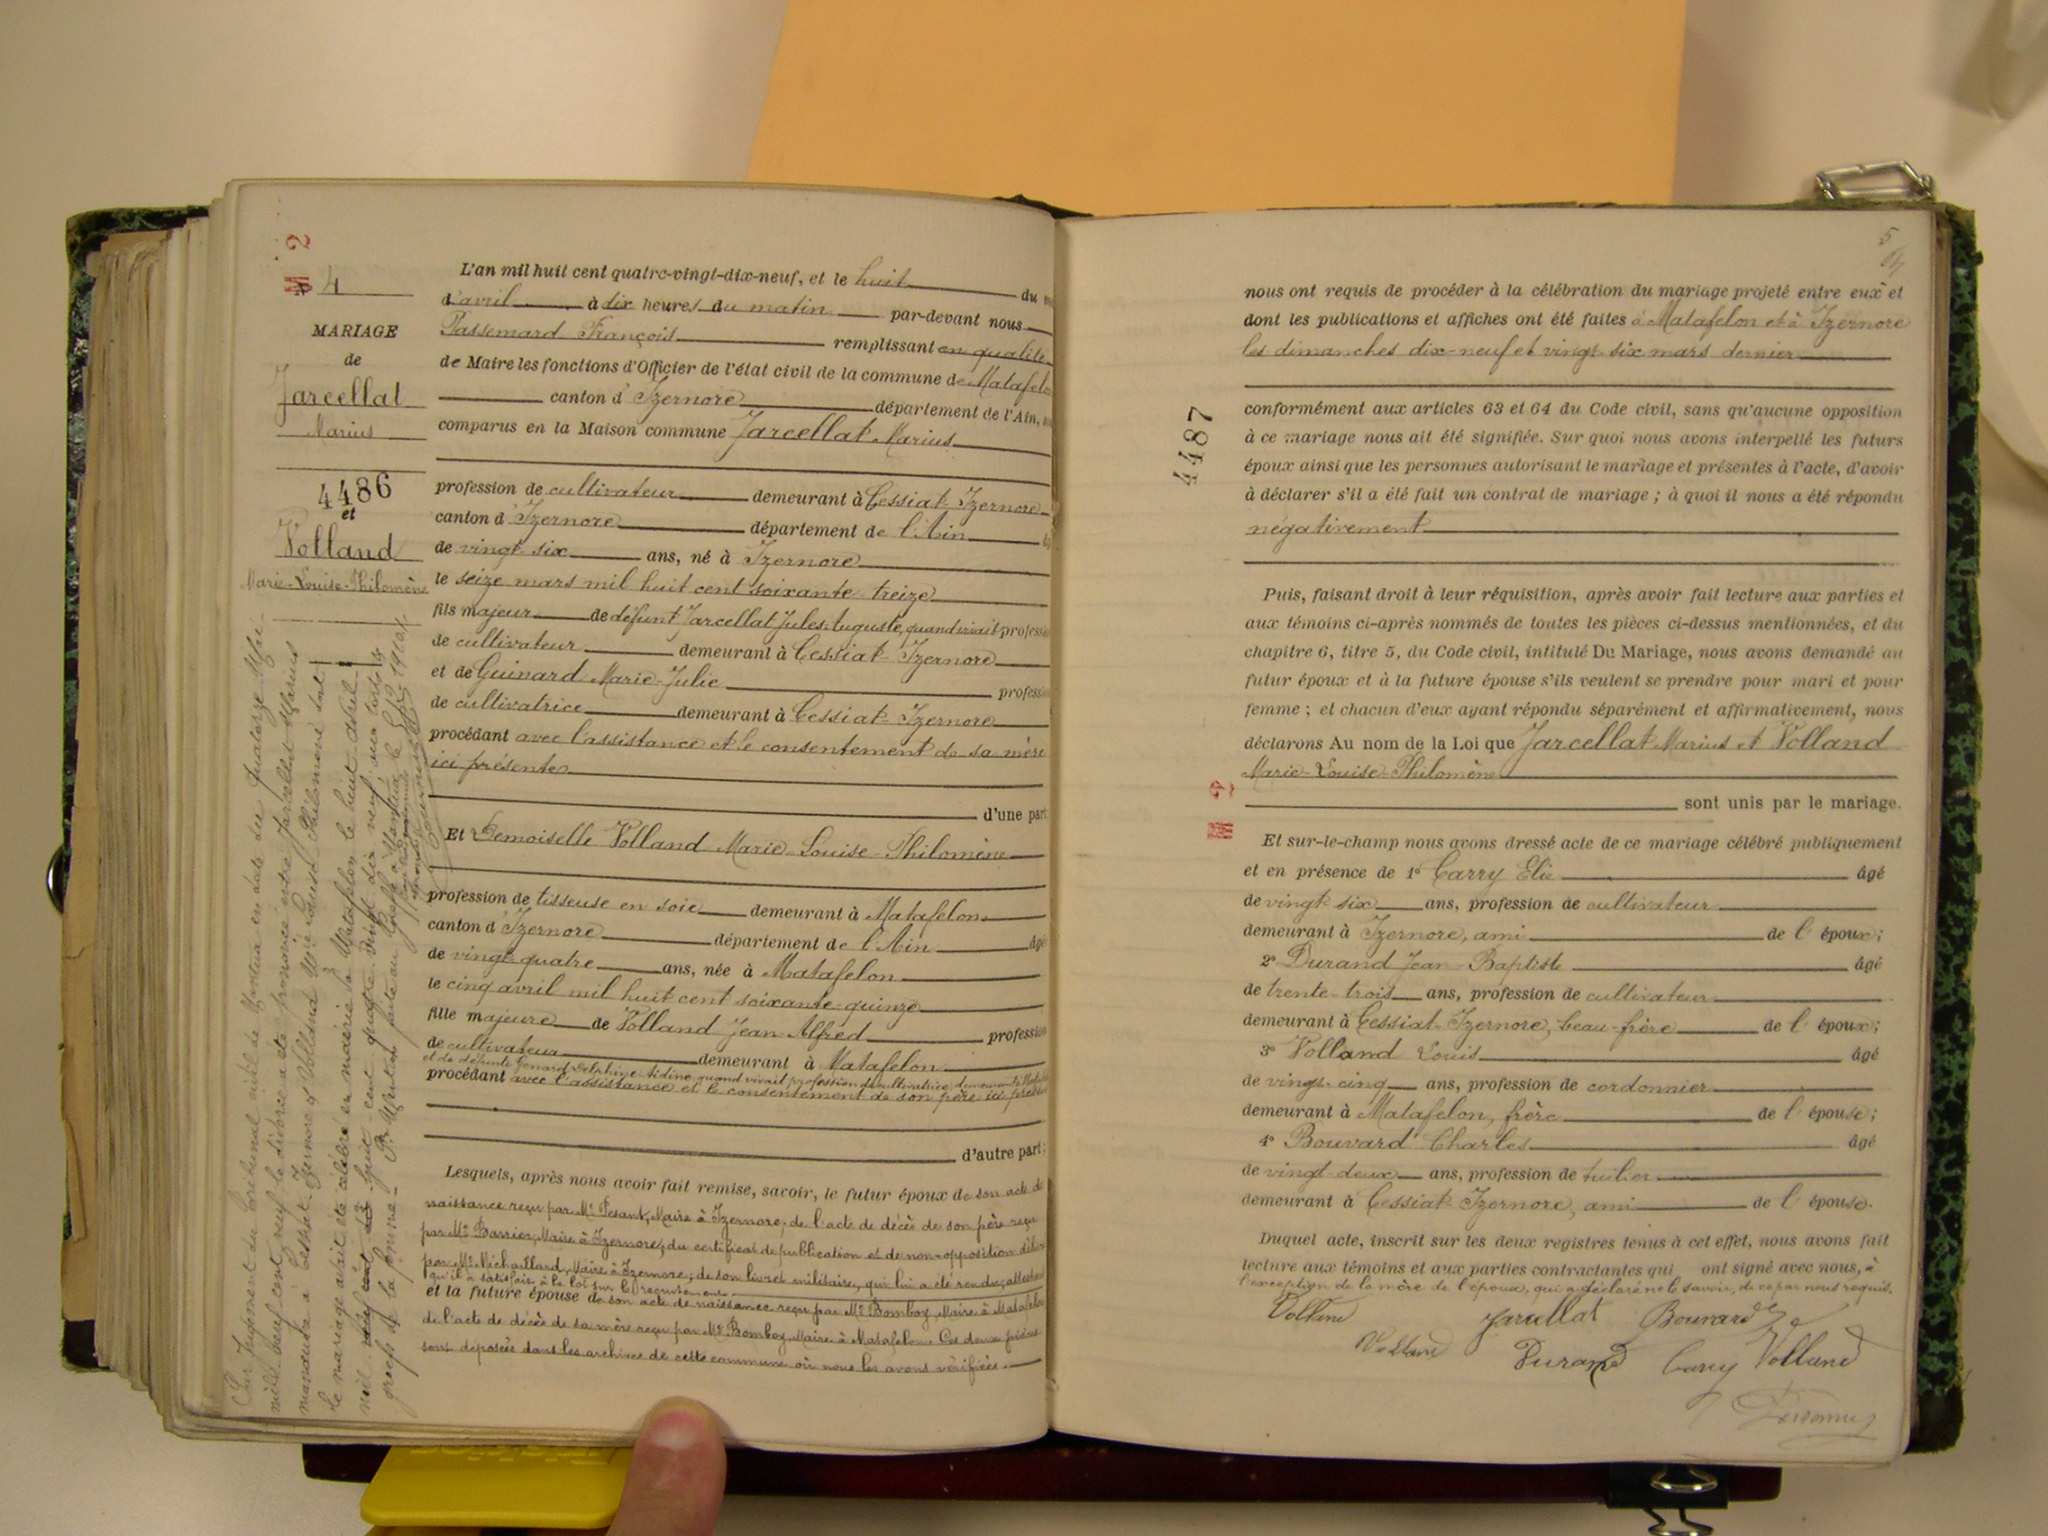 M 2
4
MARIAGE
de
Jarcellat
Marius
4486
et
Volland
Marie-Louise-Philomène
Par Jugement du tribunal civil de Nantua en date du quatorze Mai
mille neuf cent neuf le divorce a été prononcé entre Jarcellat Marius
manœuvre à Cessiat-Izernore & Volland Marie Louise Philomène dont
le mariage avait été célébré en mairie de Matafelon le huit avril
mil huit cent quatre vingt dix neuf, aux torts &
griefs de la femme - Pr Mention faite au greffe à Nantua le 1910
L'an mil huit cent quatre-vingt-dix-neuf, et le huit du
d'avril à dix heures du matin par-devant nous
Passemard François remplissant en qualité
de Maire les fonctions d'Officier de l'état civil de la commune de Matafelo
canton d'Izernore département de l'Ain,
comparus en la Maison commune Jarcellat Marius
profession de cultivateur demeurant à Cessiat-Izernore
canton d'Izernore département de l'Ain
de vingt-six ans, né à Izernore
le seize mars mil huit cent soixante-treize
fils majeur de défunt Jarcellat Jules-Auguste, quand vivait profession
de cultivateur demeurant à Cessiat-Izernore
et de Guinard Marie-Julie profession
de cultivatrice demeurant à Cessiat-Izernore
procédant avec l'assistance et le consentement de sa mère
ici présente
d'une part
Et Demoiselle Volland Marie-Louise-Philomène
profession de tisseuse en soie demeurant à Matafelon
canton d'Izernore département de l'Ain âgé
de vingt-quatre ans, née à Matafelon
le cinq avril mil huit cent soixante-quinze
fille majeure de Volland Jean-Alfred profession
de cultivateur demeurant à Matafelon
et de défunte Delphine quand vivait profession de cultivatrice demeurant à
procédant avec l'assistance et le consentement de son père ici présent
d'autre part;
Lesquels, après nous avoir fait remise, savoir, le futur époux de son acte de
naissance reçu par Mr Pesant, Maire à Izernore, de l'acte de décès de son père reçu
par Mr Barrier, Maire à Izernore, du certificat de publication et de non-opposition délivré
par Mr Michaillard, Maire à Izernore; de son livret militaire, qui lui a été rendu, attestant
qu'il a satisfait à la loi sur le recrutement
et la future épouse de son acte de naissance reçu par Mr Bomboz, Maire à Matafelon
de l'acte de décès de sa mère reçu par Mr Bomboz, Maire à Matafelon. Ces deux pièces
sont déposées dans les archives de cette commune où nous les avons vérifiées.
5
nous ont requis de procéder à la célébration du mariage projeté entre eux et
dont les publications et affiches ont été faites à Matafelon et à Izernore
les dimanches dix-neuf et vingt-six mars dernier
4487
conformément aux articles 63 et 64 du Code civil, sans qu'aucune opposition
à ce mariage nous ait été signifiée. Sur quoi nous avons interpellé les futurs
époux ainsi que les personnes autorisant le mariage et présentes à l'acte, d'avoir
à déclarer s'il a été fait un contrat de mariage; à quoi il nous a été répondu
négativement
Puis, faisant droit à leur réquisition, après avoir fait lecture aux parties et
aux témoins ci-après nommés de toutes les pièces ci-dessus mentionnées, et du
chapitre 6, titre 5, du Code civil, intitulé Du Mariage, nous avons demandé au
futur époux et à la future épouse s'ils veulent se prendre pour mari et pour
femme; et chacun d'eux ayant répondu séparément et affirmativement, nous
déclarons Au nom de la Loi que Jarcellat Marius et Volland
Marie-Louise-Philomène
sont unis par le mariage.
M 2
Et sur-le-champ nous avons dressé acte de ce mariage célébré publiquement
et en présence de 1° Carry Elie âgé
de vingt-six ans, profession de cultivateur
demeurant à Izernore, ami de l'époux;
2° Durand Jean-Baptiste âgé
de trente-trois ans, profession de cultivateur
demeurant à Cessiat-Izernore, beau-frère de l'époux;
3° Volland Louis âgé
de vingt-cinq ans, profession de cordonnier
demeurant à Matafelon, frère de l'épouse;
4° Bouvard Charles âgé
de vingt-deux ans, profession de tuilier
demeurant à Cessiat-Izernore, ami de l'épouse.
Duquel acte, inscrit sur les deux registres tenus à cet effet, nous avons fait
lecture aux témoins et aux parties contractantes qui ont signé avec nous, à
l'exception de la mère de l'époux, qui a déclaré ne le savoir, de ce par nous requis.
Volland Jarcellat Bouvard
Volland Durand Carry Volland